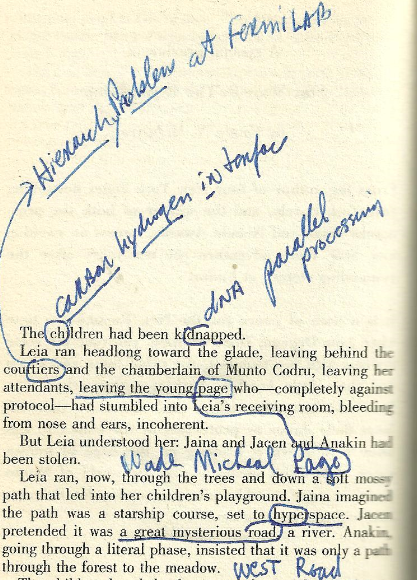 Hierarch Problem at FermiLAB
carbon hydrogen intonfac
dNA parallel
processing
The children had been kidnapped.
Leia ran headlong toward the glade, leaving behind the
courtiers and the chamberlain of Munto Codru, leaving her
attendants, leaving the young page who—completely against
protocol—had stumbled into Leia's receiving room, bleeding
from nose and ears, incoherent.
But Leia understood her: Jaina and Jacen and Anakin had
been stolen.
Wade Micheal Page
Leia ran, now, through the trees and down a soft mossy
path that led into her children's playground. Jaina imagined
the path was a starship course, set to hyperspace. Jacen
pretended it was a great mysterious road, a river. Anakin,
going through a literal phase, insisted that it was only a path
through the forest to the meadow.
West Road